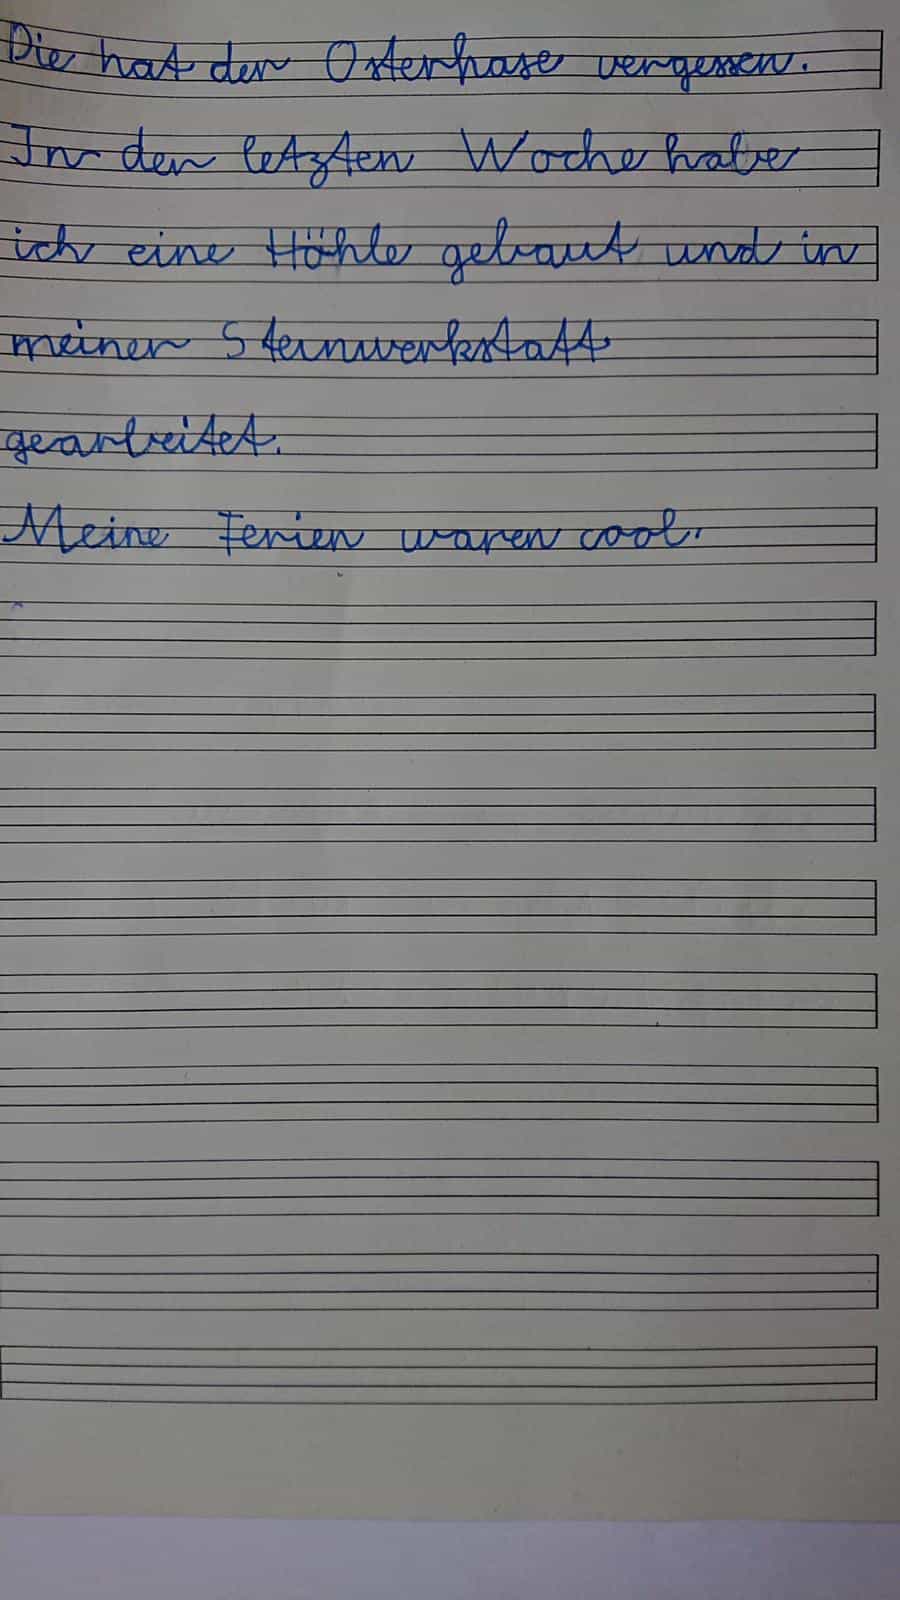 Die hat der Osterhase vergessen.
In der letzten Woche habe
ich eine Höhle gebaut und in
meiner Steinwerkstatt
gearbeitet.
Meine Ferien waren cool.